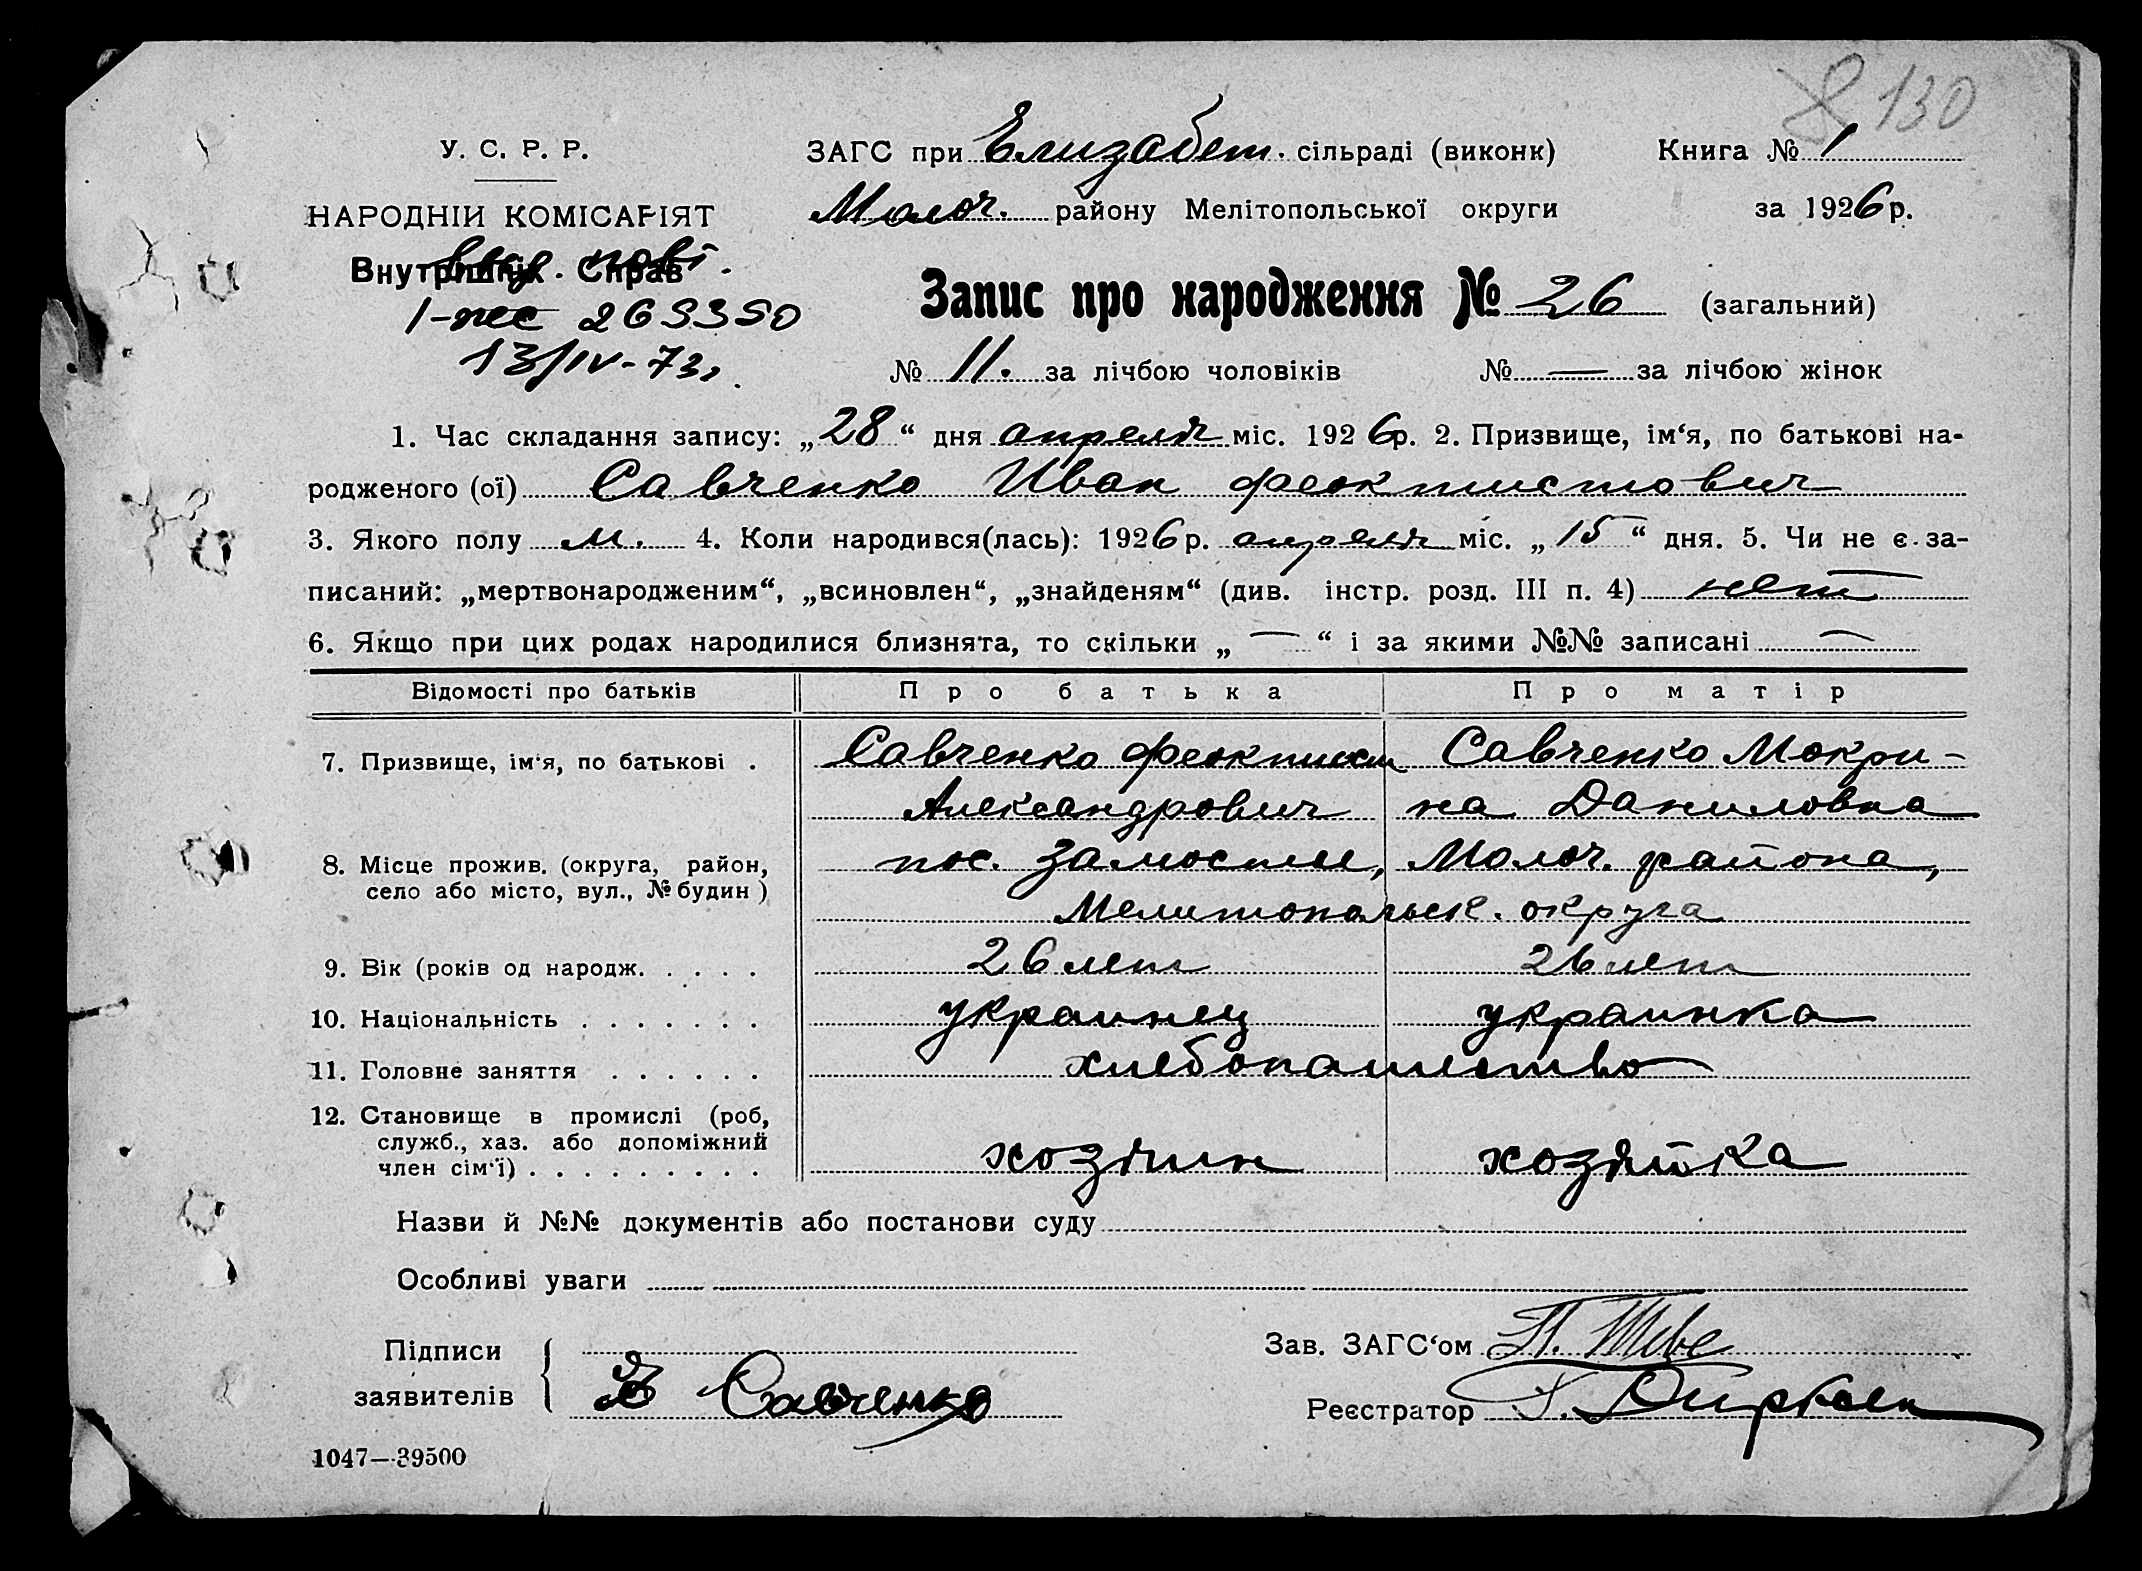 8 130
У. С. Р. Р.
НАРОДНІЙ КОМІСАРІЯТ
Внутрішніх Справ
пові.
269350
13/IV-73,
ЗАГС при Елизабет. сільраді (виконк)
Молоч. району Мелітопольської округи
Книга № 1
за 1926 р.
Запис про народження № 26 (загальний)
№ 11. за лічбою чоловіків № — за лічбою жінок
1. Час складання запису: „28“ дня апреля міс. 1926р. 2. Призвище, ім‘я, по батькові на-
родженого (ої) Савченко Иван Феоктистович
3. Якого полу м. 4. Коли народився(лась): 1926р. апреля міс. „15“ дня. 5. Чи не є за-
писаний: „мертвонародженим“, „всиновлен“, „знайденям“ (див. інстр. розд. III п. 4) нет
6. Якщо при цих родах народилися близнята, то скільки „ — “ і за якими №№ записані —
Відомості про батьків Про батька Про матір
7. Призвище, ім‘я, по батькові . Савченко Феоктист Савченко Мокри-
Александрович на Даниловна
8. Місце прожив. (округа, район, пос. Замостье, Молоч. района,
село або місто, вул., № будин) Мелитопольск. округа
9. Вік (років од народж. . . . . 26 лет 26 лет
10. Національність . . . . . . . украинец украинка
11. Головне заняття . . . . . . хлебопашество
12. Становище в промислі (роб,
служб., хаз. або допоміжний
член сім‘ї) . . . . . . . . . хозяин хозяйка
Назви й №№ документів або постанови суду
Особливі уваги
Підписи
заявителів Савченко
Зав. ЗАГС‘ом П.
Реєстратор Г. Дирксен
1047—39500